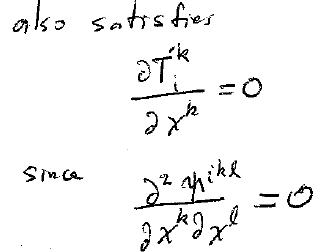 also satisfies
∂T_i^k / ∂x^k = 0
since ∂²ψ^{ikl} / ∂x^k ∂x^l = 0